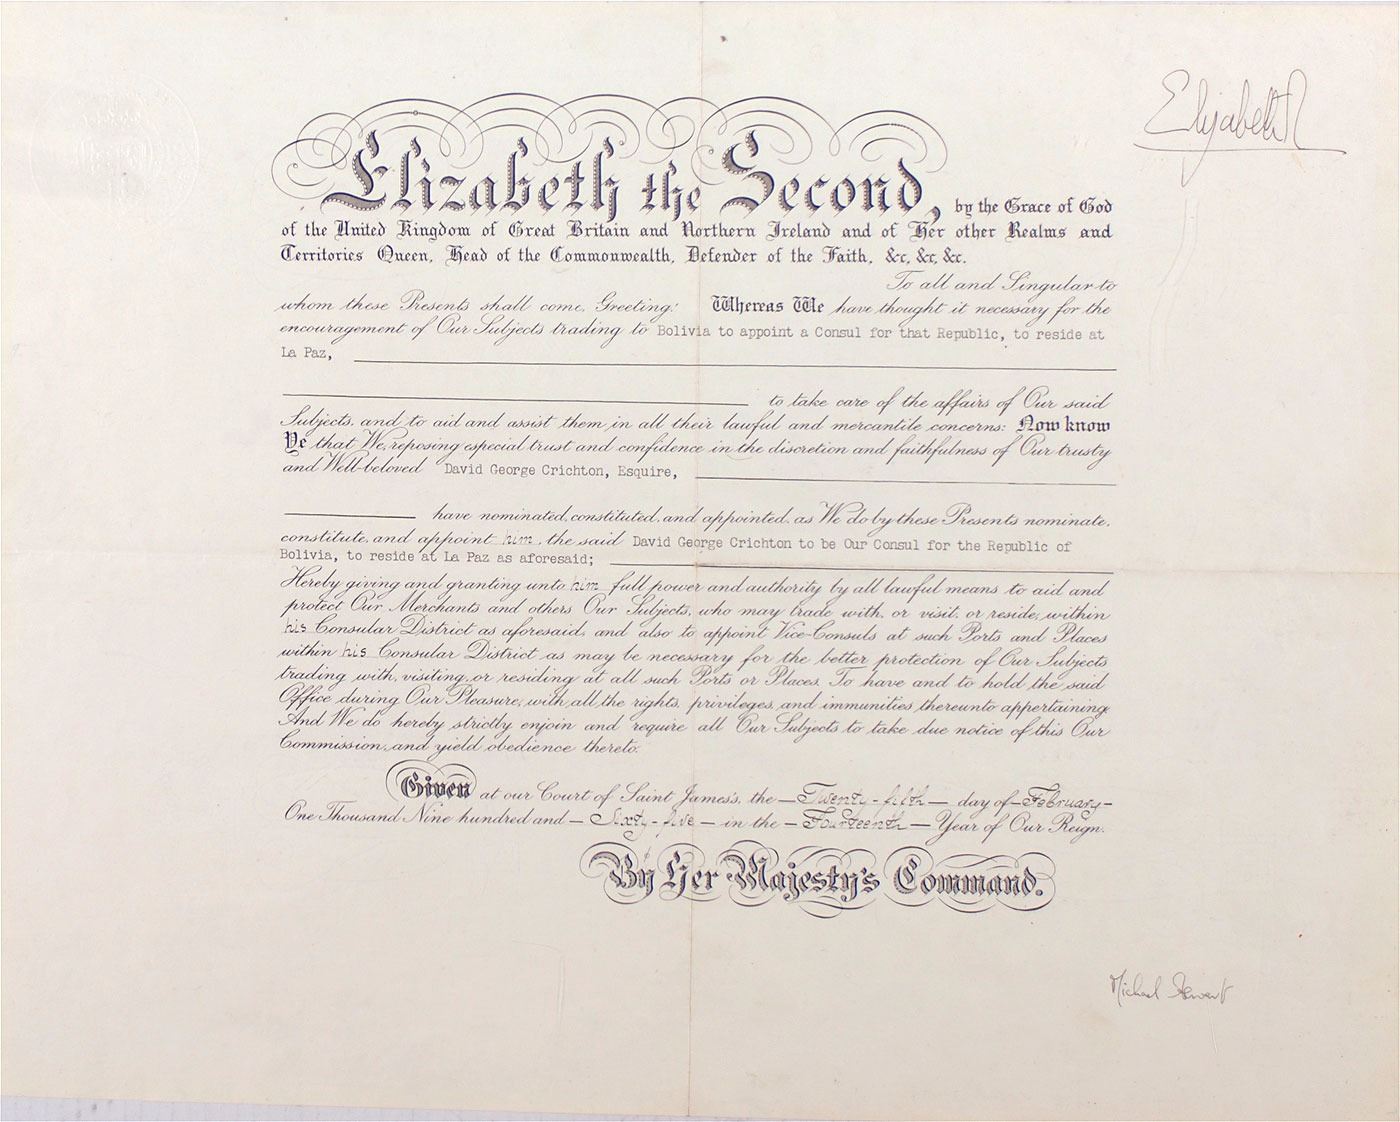 Elizabeth R
Elizabeth the Second, by the Grace of God
of the United Kingdom of Great Britain and Northern Ireland and of Her other Realms and
Territories Queen, Head of the Commonwealth, Defender of the Faith, &c, &c, &c.
To all and Singular to
whom these Presents shall come, Greeting: Whereas We have thought it necessary for the
encouragement of Our Subjects trading to Bolivia to appoint a Consul for that Republic, to reside at
La Paz,
to take care of the affairs of Our said
Subjects, and to aid and assist them in all their lawful and mercantile concerns: Now know
Ye that We, reposing especial trust and confidence in the discretion and faithfulness of Our trusty
and Well-beloved David George Crichton, Esquire,
have nominated, constituted, and appointed, as We do by these Presents nominate,
constitute, and appoint him, the said David George Crichton to be Our Consul for the Republic of
Bolivia, to reside at La Paz as aforesaid;
Hereby giving and granting unto him full power and authority by all lawful means to aid and
protect Our Merchants and others Our Subjects, who may trade with, or visit, or reside, within
his Consular District as aforesaid, and also to appoint Vice-Consuls at such Ports and Places
within his Consular District as may be necessary for the better protection of Our Subjects
trading with, visiting, or residing at all such Ports or Places. To have and to hold the said
Office during Our Pleasure, with all the rights, privileges, and immunities thereunto appertaining.
And We do hereby strictly enjoin and require all Our Subjects to take due notice of this Our
Commission, and yield obedience thereto.
Given at our Court of Saint James's, the — Twenty-fifth — day of — February —
One Thousand Nine hundred and — Sixty-five — in the — Fourteenth — Year of Our Reign.
By Her Majesty's Command.
Michael Stewart